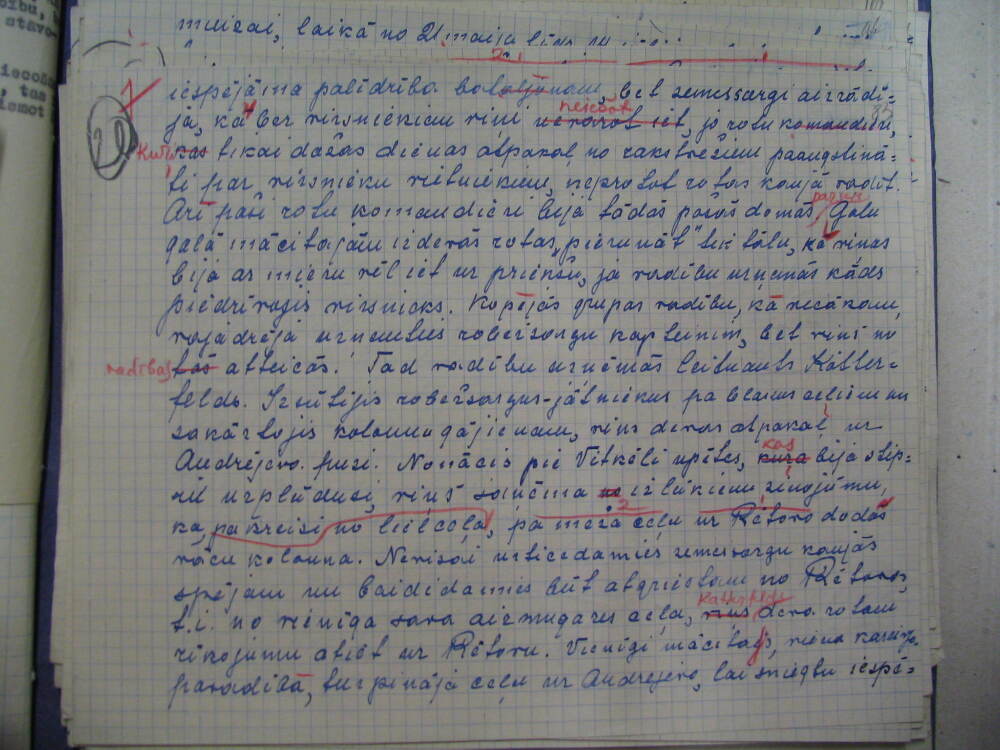 muižai, laikā no 21 maija līdz
iespējama palīdzība bataljonam, bet zemessargi aizrādī-
ja, ka bez virsniekiem viņi nevarot iet, jo rotu komandieri,
neiešot
kuri kas tikai dažas dienas atpakaļ no rakstvežiem paaugstinā-
ti par virsnieku vietniekiem, neprotot rotas kaujā vadīt.
Arī paši rotu komandieri bija tādās pašās domās, Galu
galā mācītajām izdevās rotas „pierunāt" tik tālu, ka viņas
bija ar mieru vēl iet uz priekšu, ja vadību uzņemās kāds
piedzīvojis virsnieks. Kopējās grupas vadību, kā vecākam,
vajadzēja uzņemties robežsargu kapteinim, bet viņš no
vadības tās atteicās. Tad vadību uzņēmās leitnants Katter-
felds. Izsūtījis robežsargus-jātniekus pa blakus ceļiem un
sakārtojis kolonnu gājienam, viņš devās atpakaļ uz
Andrējeva pusi. Nonācis pie Vitkāļi upītes, kura bija stip-
kas
ri uzplūdusi, viņš saņēma no izlūkiem ziņojumu,
ka, pa kreisi no lielceļa, pa meža ceļu uz Rētovo dodas
vācu kolonna. Nerisoi uzticedamies zemessargu kaujas
spējām un baididamies būt atgrieztam no Rētovo,
t.i. no vienīga sava aizmugures ceļa, viņš deva rotām
Katterfelds
rīkojumu atiet uz Rētovu. Vienīgi mācītājs, viena kareivja
pavadībā, turpināja ceļu uz Andrejevo, lai sniegtu iespē-